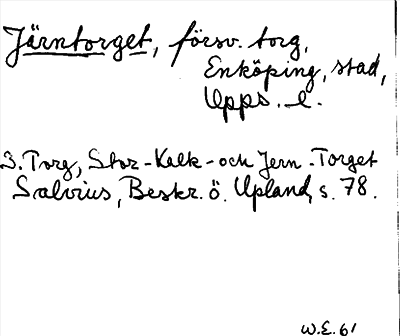 Järntorget, försv. torg,
Enköping, stad,
Upps. l.
3. Torg, Stor-Kalk-och Jern-Torget
Salvius, Beskr. ö. Upland, s. 78.
W.E. 61